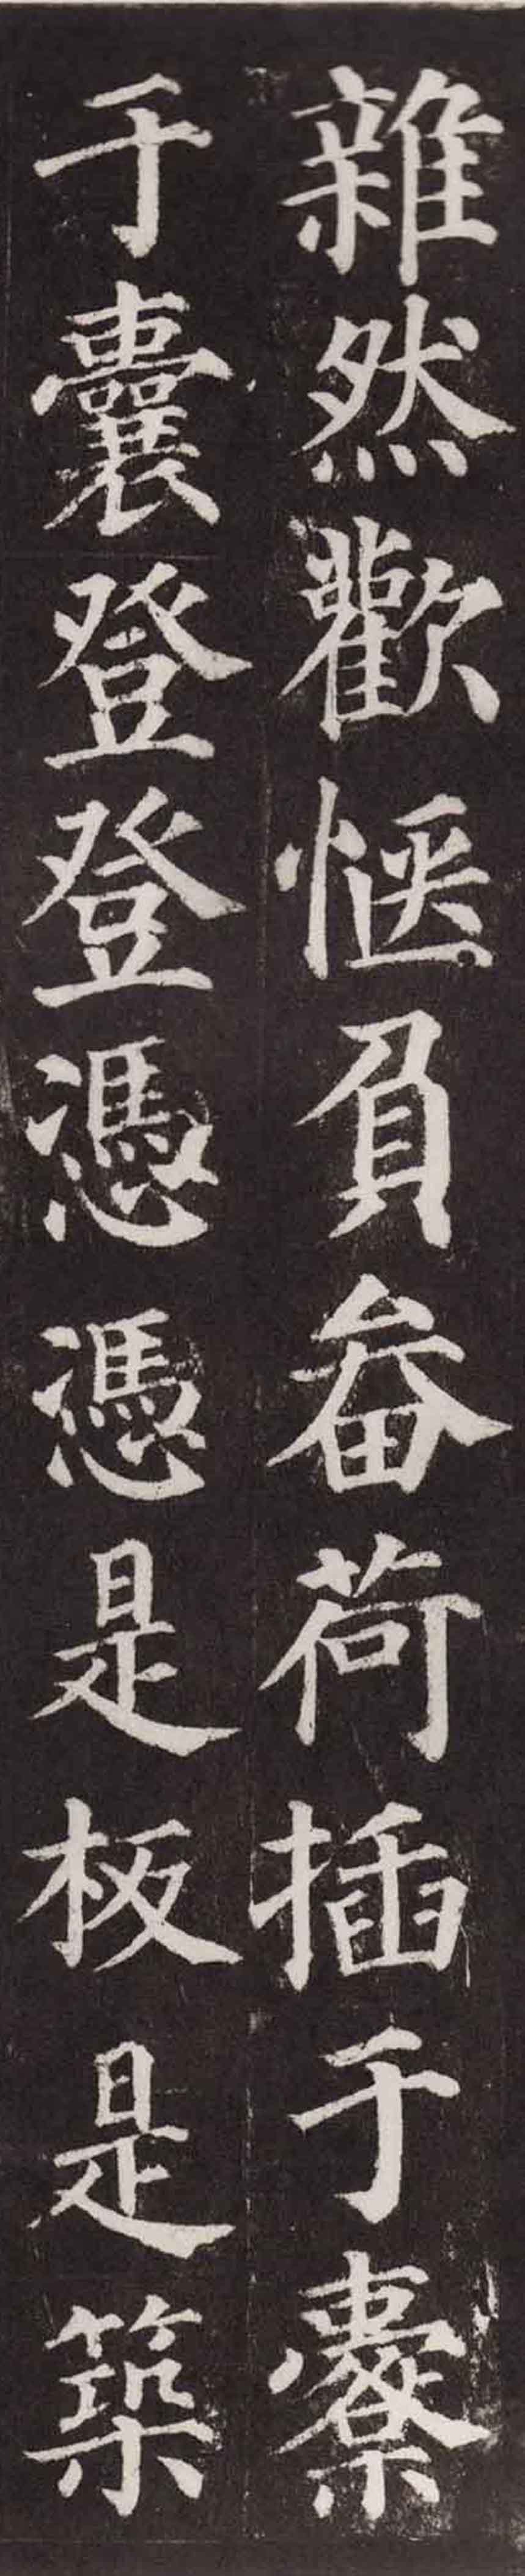 雜然歡愜負畚荷插于橐
于囊登登憑憑是板是築